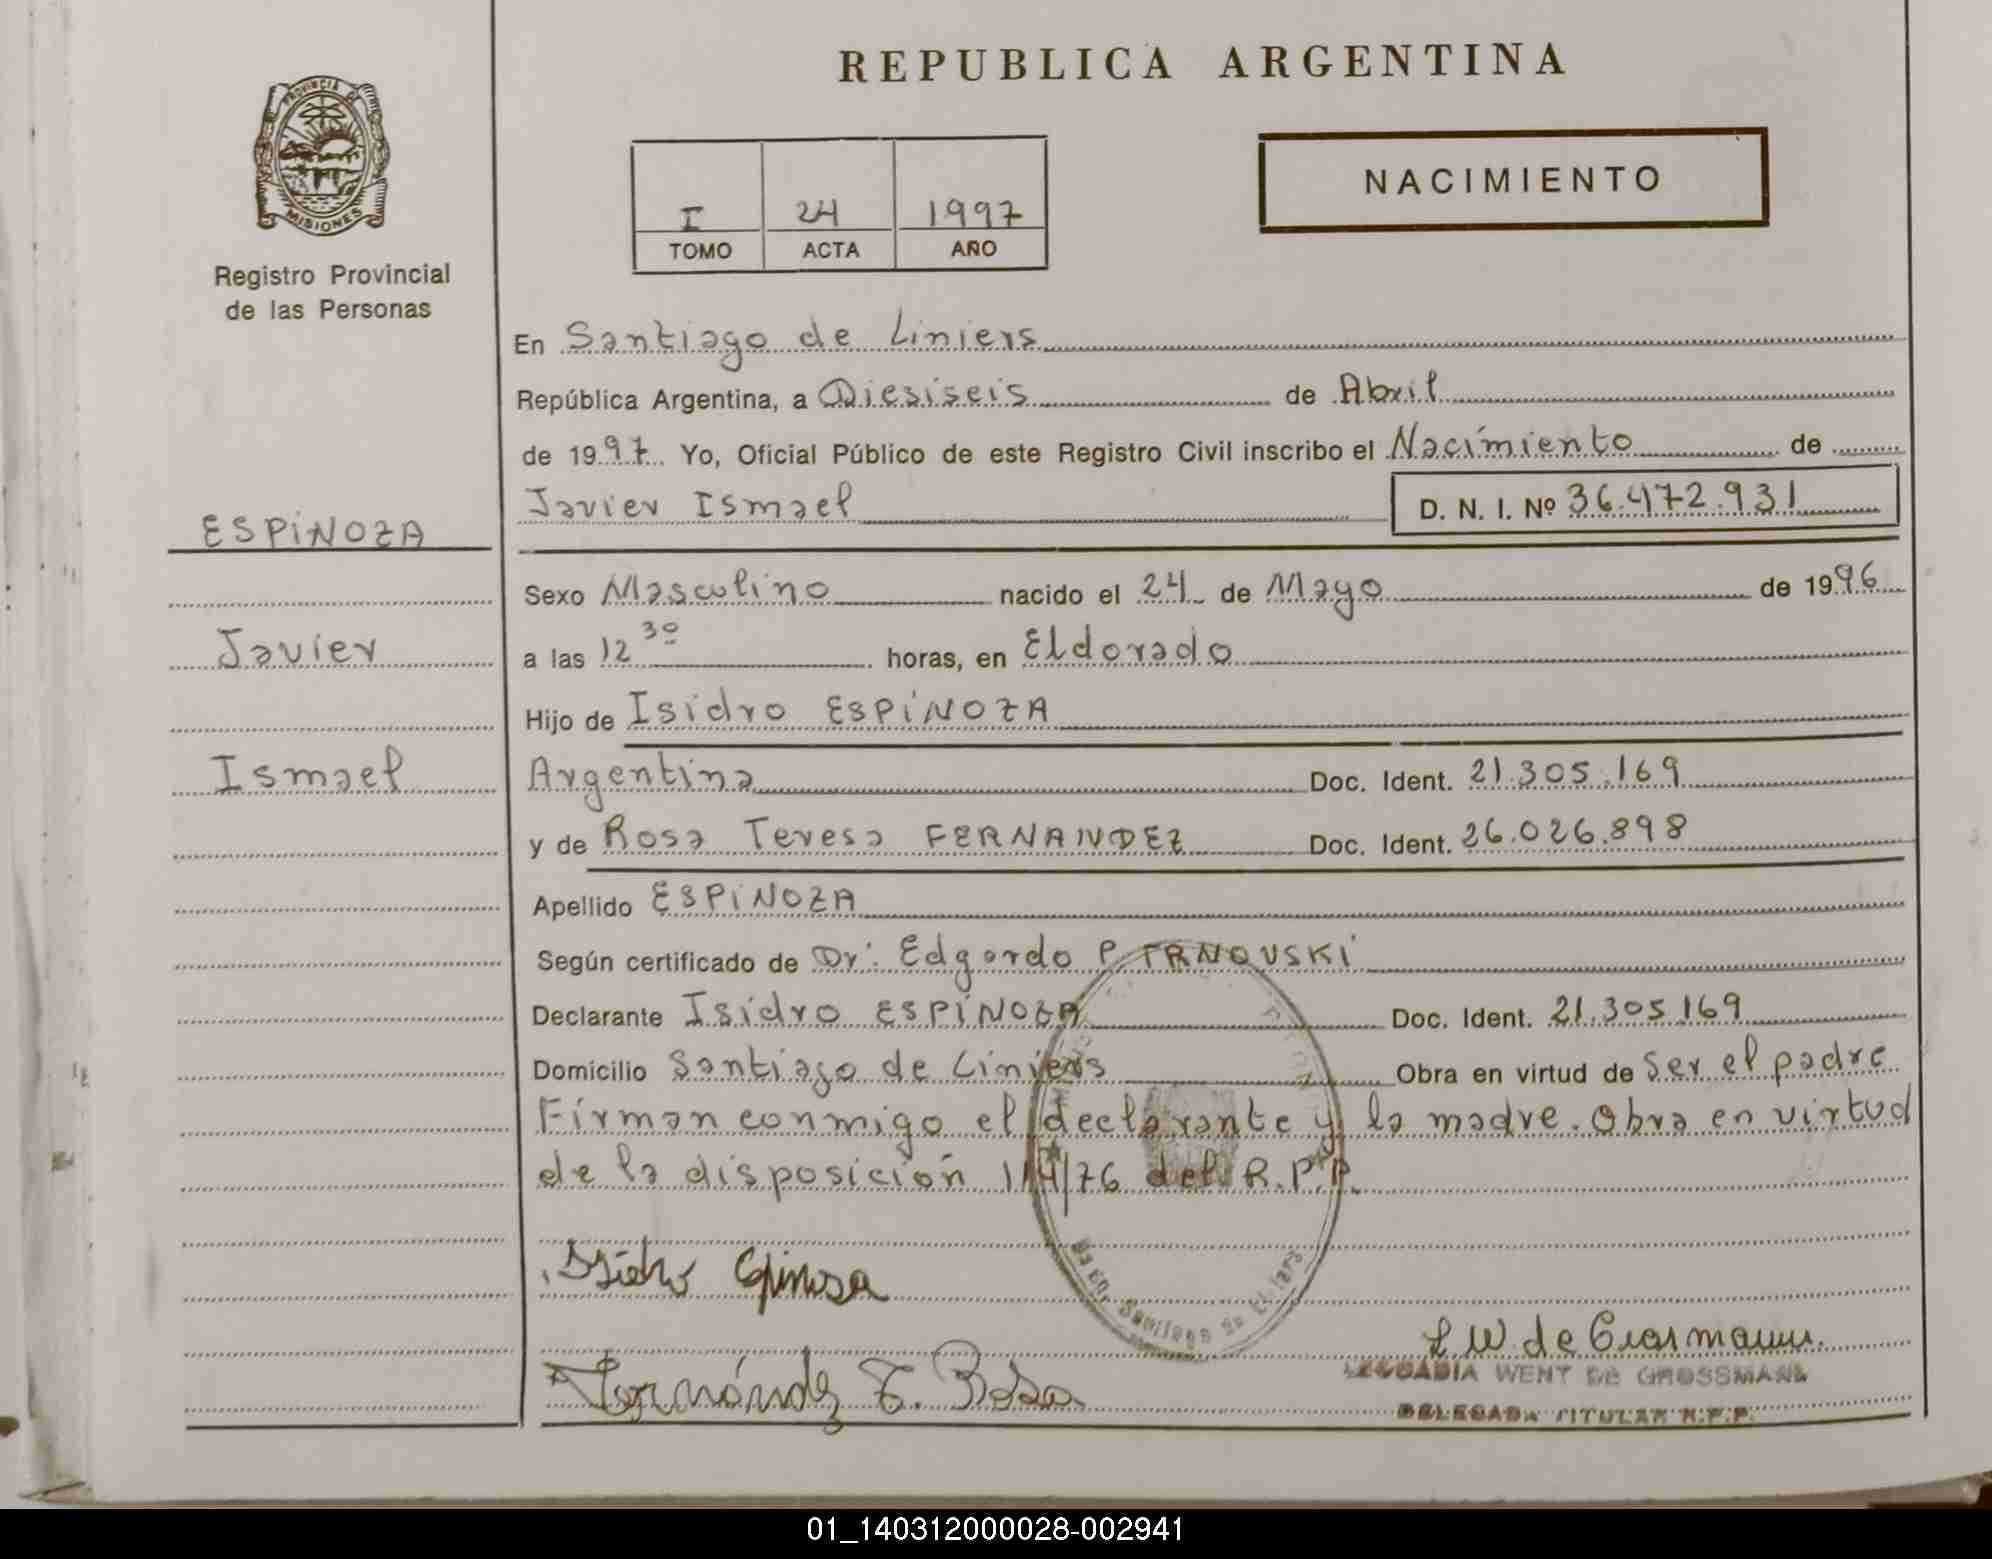 REPUBLICA ARGENTINA
PROVINCIA DE
MISIONES
Registro Provincial
de las Personas
NACIMIENTO
I 24 1997
TOMO ACTA AÑO
En Santiago de Liniers
República Argentina, a Diesiseis de Abril
de 1997 Yo, Oficial Público de este Registro Civil inscribo el Nacimiento de
Javier Ismael D. N. I. Nº 36.472.931
ESPINOZA
Javier
Ismael
Sexo Masculino nacido el 24 de Mayo de 1996
a las 12 30 horas, en Eldorado
Hijo de Isidro ESPINOZA
Argentina Doc. Ident. 21.305.169
y de Rosa Teresa FERNANDEZ Doc. Ident. 26.026.898
Apellido ESPINOZA
Según certificado de Dr: Edgardo P TRNOVSKI
Declarante Isidro ESPINOZA Doc. Ident. 21.305.169
Domicilio Santiago de Liniers Obra en virtud de ser el padre
Firman conmigo el declarante y la madre. Obra en virtud
de la disposición 114/76 del R.P.P.
Isidro Espinosa
Fernández T. Rosa
L W de Grosmann.
LEOCADIA WENT DE GROSSMANN
DELEGADA TITULAR R.P.P.
Santiago de Liniers
01_140312000028-002941